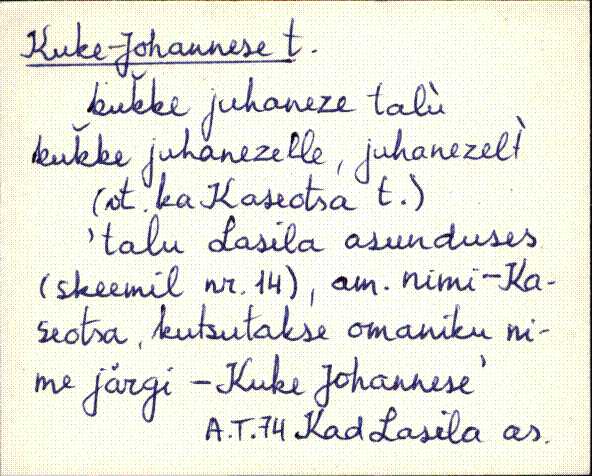 Kuke-Johannese t.
kuk̆ke juhaneze talù
kuk̆ke juhanezelle, juhanezelt̀
(vt. ka Kaseotsa t.)
'talu Lasila asunduses
(skeemil nr. 14), am. nimi-Ka-
seotsa, kutsutakse omaniku ni-
me järgi - Kuke Johannese'
A.T.74 Kad Lasila as.